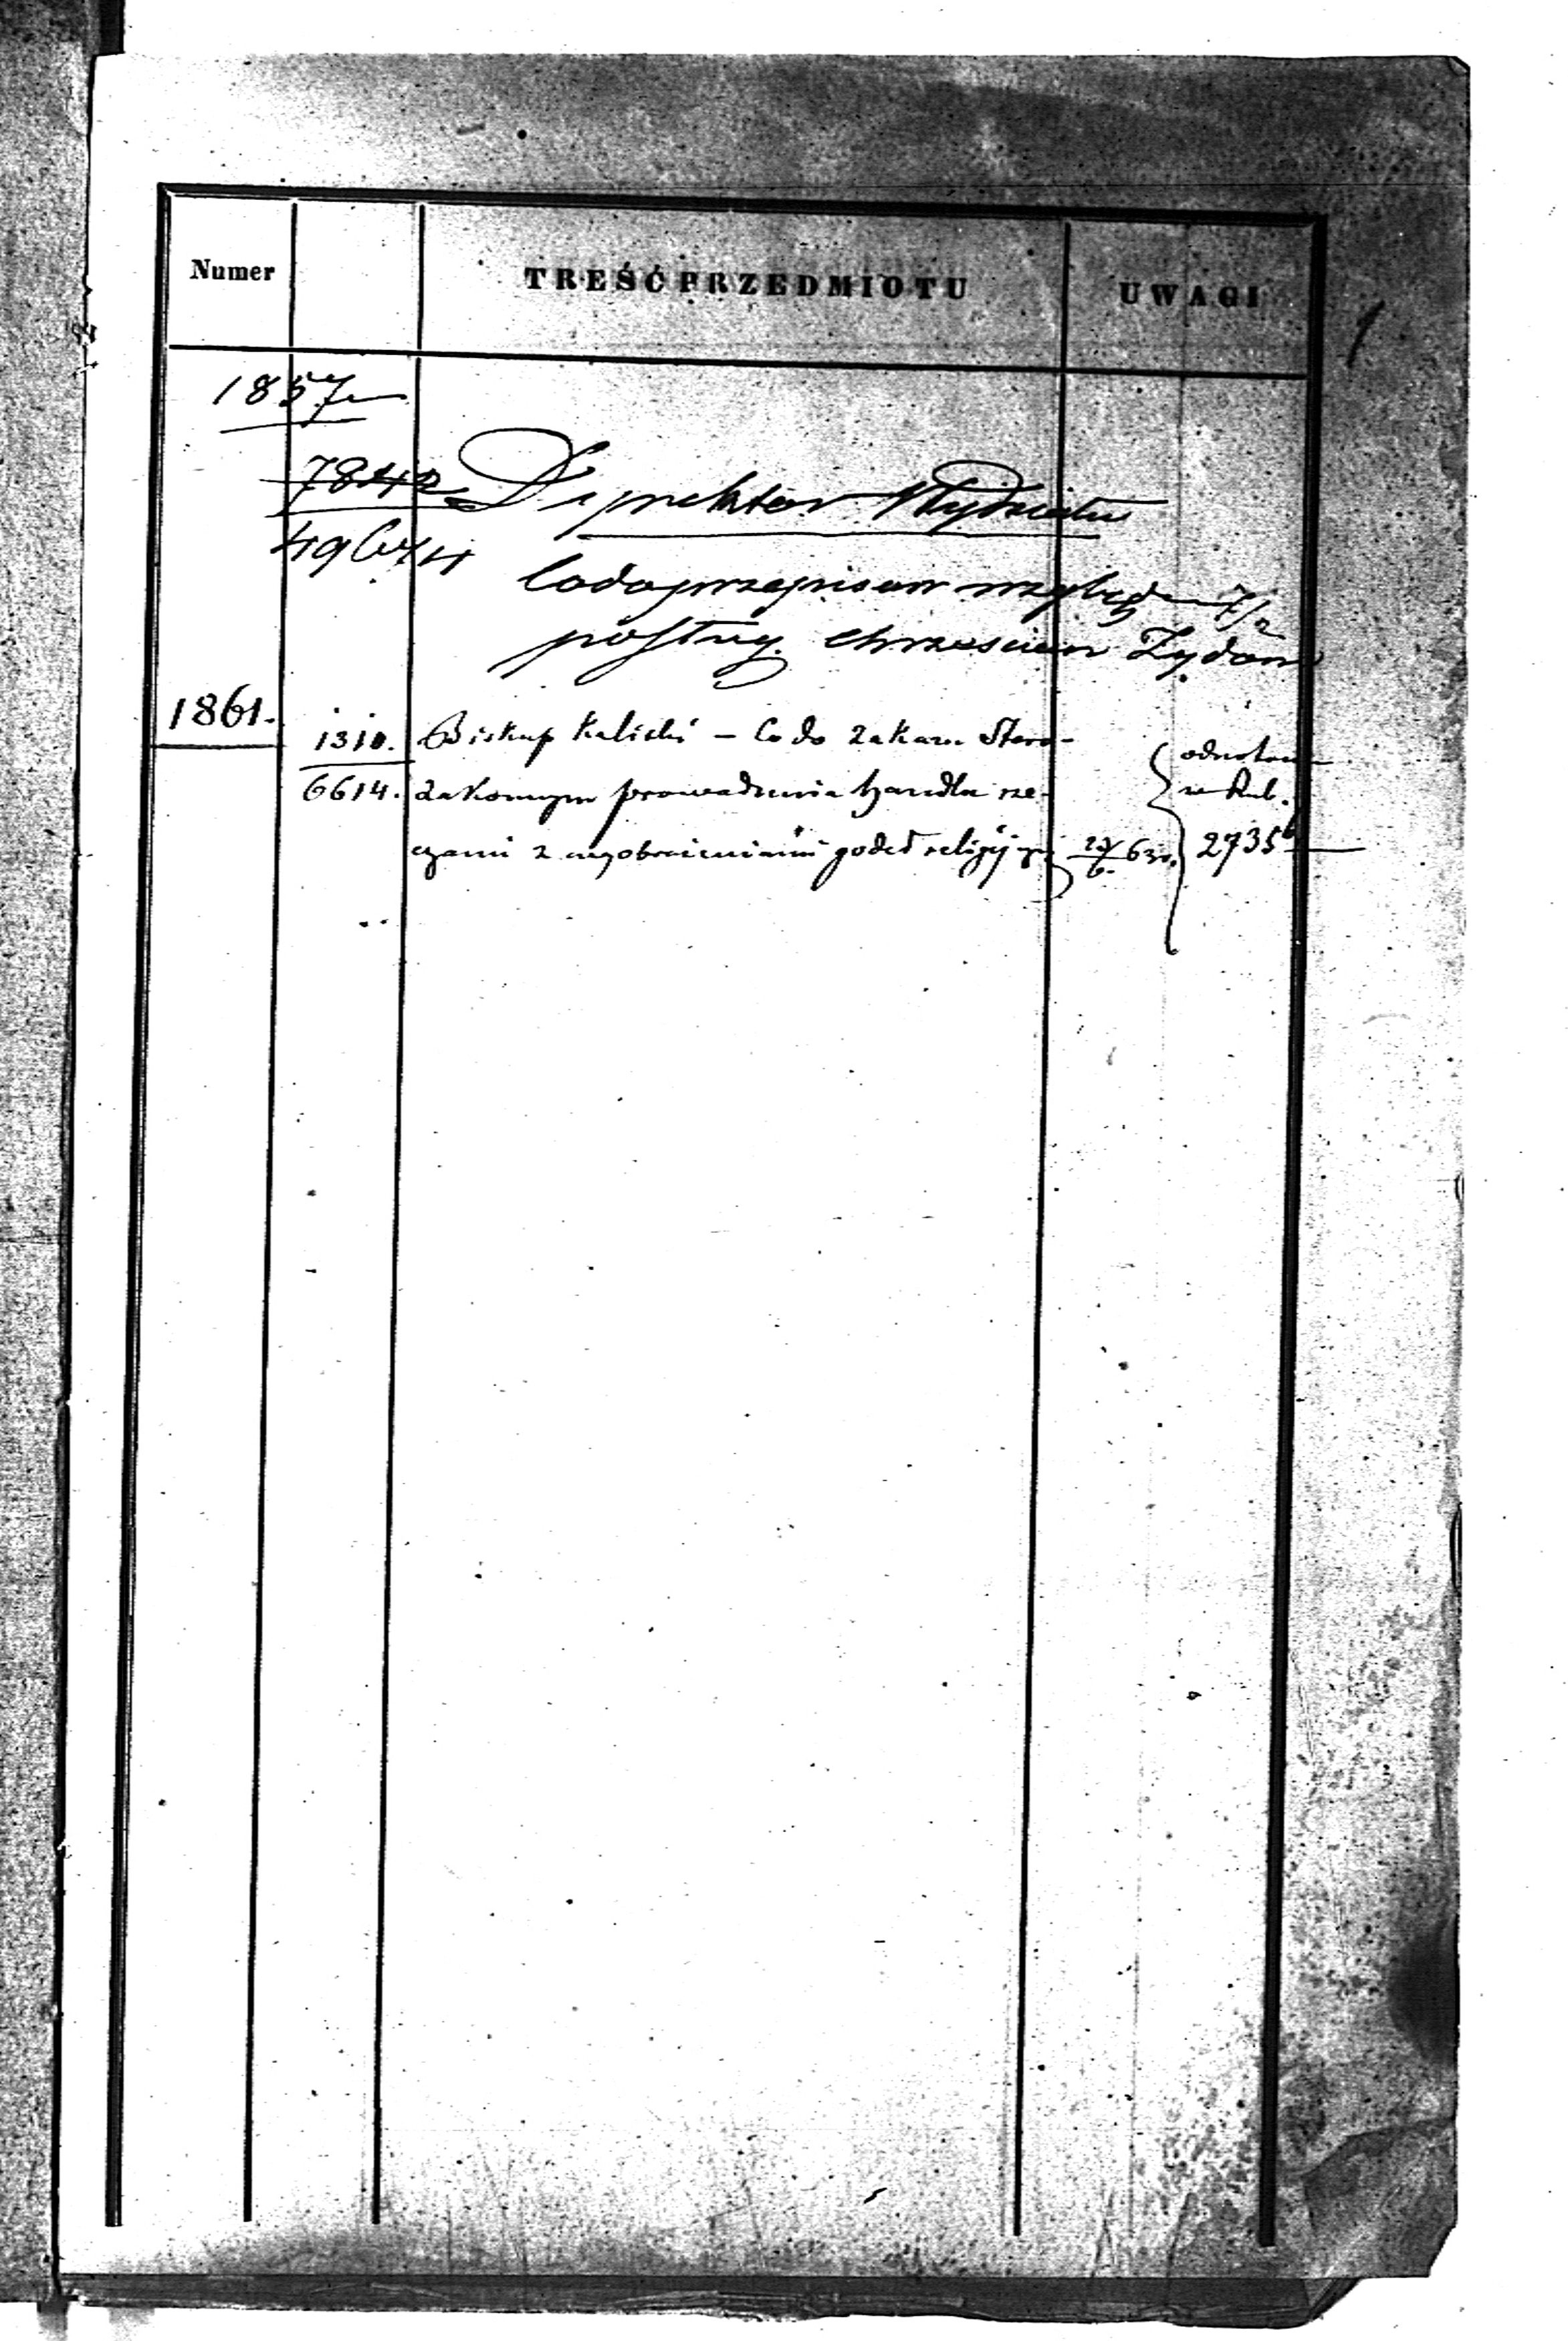 Numer TREŚĆ PRZEDMIOTU UWAGI
1
1857
7842 Dyrektor Wydziału
Co do przepisów względem 7/2
posług. chrześcian Żydom
1861.
1310. Biskup Kaliski – Co do zakazu Staro-
6614. zakonnym prowadzenia handlu rze-
czami z wyobrażeniami godeł religij
odnotow
w Rub.
2735